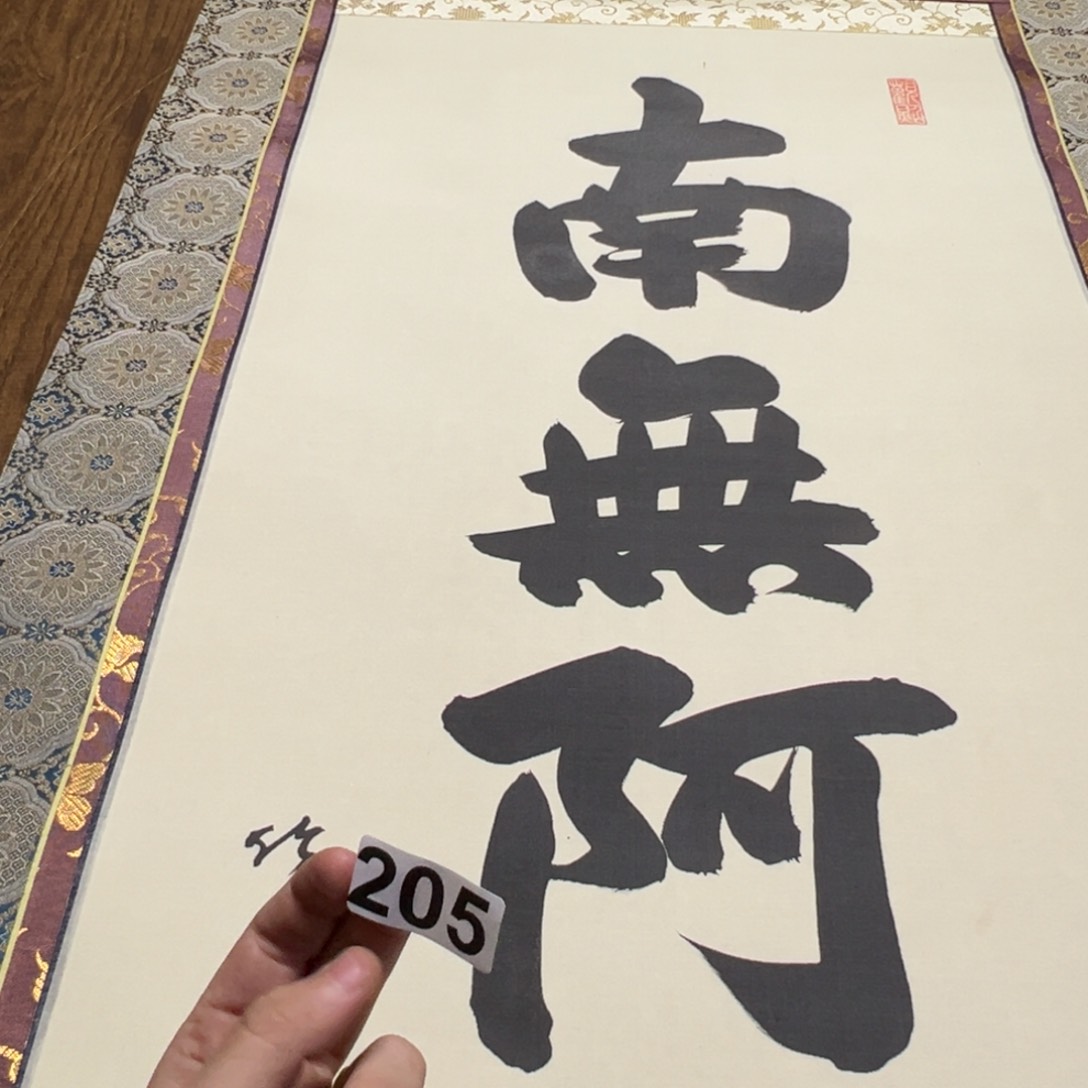 南無阿
205